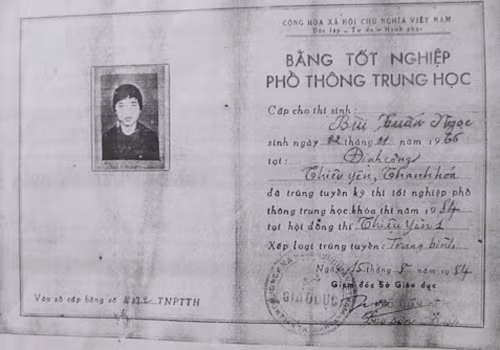 CỘNG HÒA XÃ HỘI CHỦ NGHĨA VIỆT NAM
Độc lập - Tự do - Hạnh phúc
BẰNG TỐT NGHIỆP
PHỔ THÔNG TRUNG HỌC
Cấp cho thí sinh:
Bùi Xuân Ngọc
sinh ngày 02 tháng 01 năm 1966
tại: Định công
Thiệu Yên, Thanh hóa
đã trúng tuyển kỳ thi tốt nghiệp phổ
thông trung học khóa thi năm 1984
tại hội đồng thi Thiệu Yên 1
Xếp loại trúng tuyển: Trung bình
Ngày 15 tháng 8 năm 1984
Giám đốc Sở Giáo dục
GIÁO DỤC
Vào sổ cấp bằng số TNPTTH